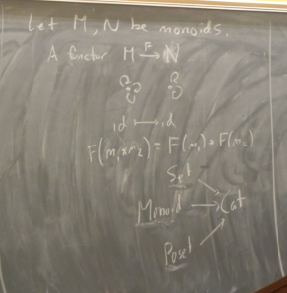 Let M, N be monoids.
A functor M F→ N
id ↦ id
F(m₁×m₂) = F(m₁)∘F(m₂)
Set
Monoid → Cat
Poset